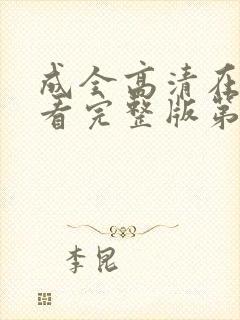 成全高清在
看完整版第
李昆